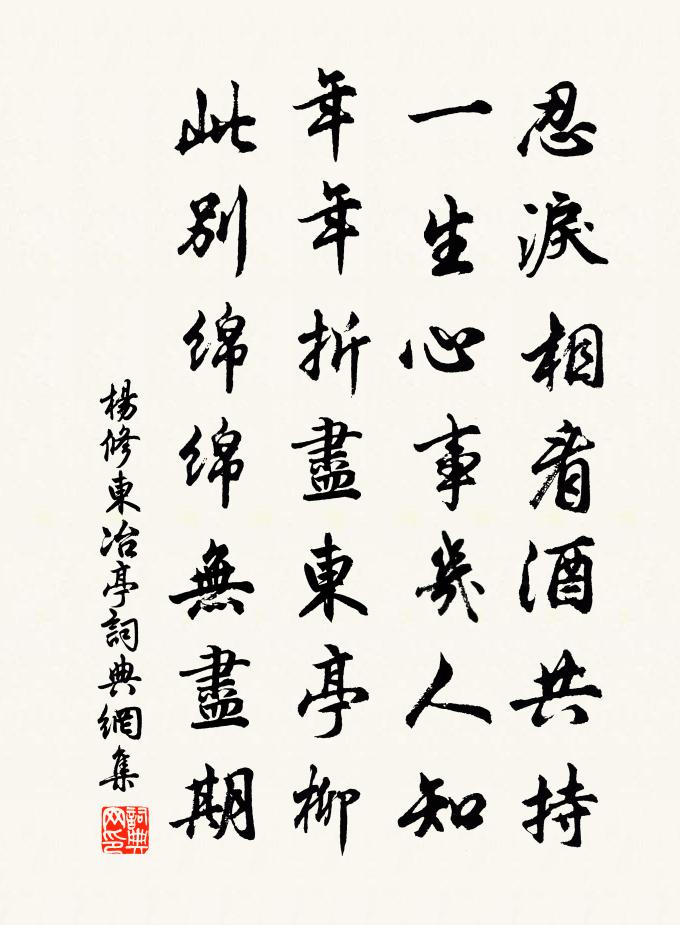 忍淚相看酒共持
一生心事幾人知
年年折盡東亭柳
此別綿綿無盡期
楊修東冶亭詞典網集
詞典
网印